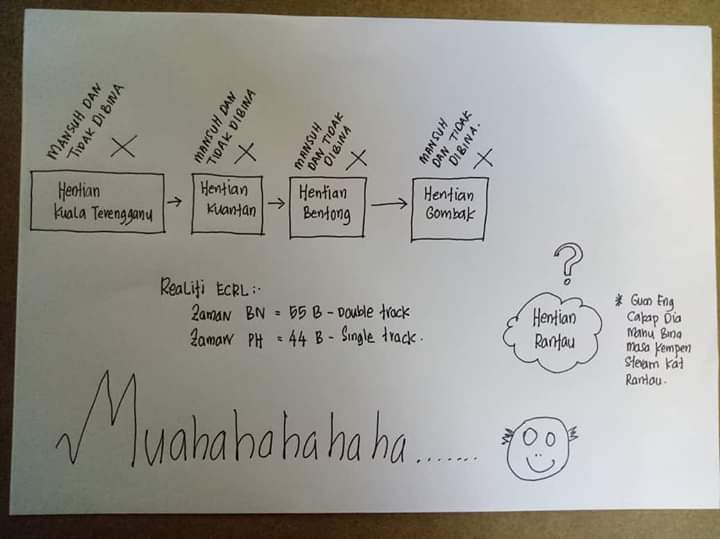 MANSUH DAN
TIDAK DIBINA
MANSUH DAN
TIDAK DIBINA
MANSUH
DAN TIDAK
DIBINA
MANSUH
DAN TIDAK
DIBINA.
Hentian
Kuala Terengganu
Hentian
Kuantan
Hentian
Bentong
Hentian
Gombak
Realiti ECRL:-
Zaman BN = 55 B - Double track
Zaman PH = 44 B - Single track.
?
Hentian
Rantau
* Guan Eng
Cakap Dia
Mahu Bina
masa Kempen
Steram Kat
Rantau.
Muahahahahaha.......